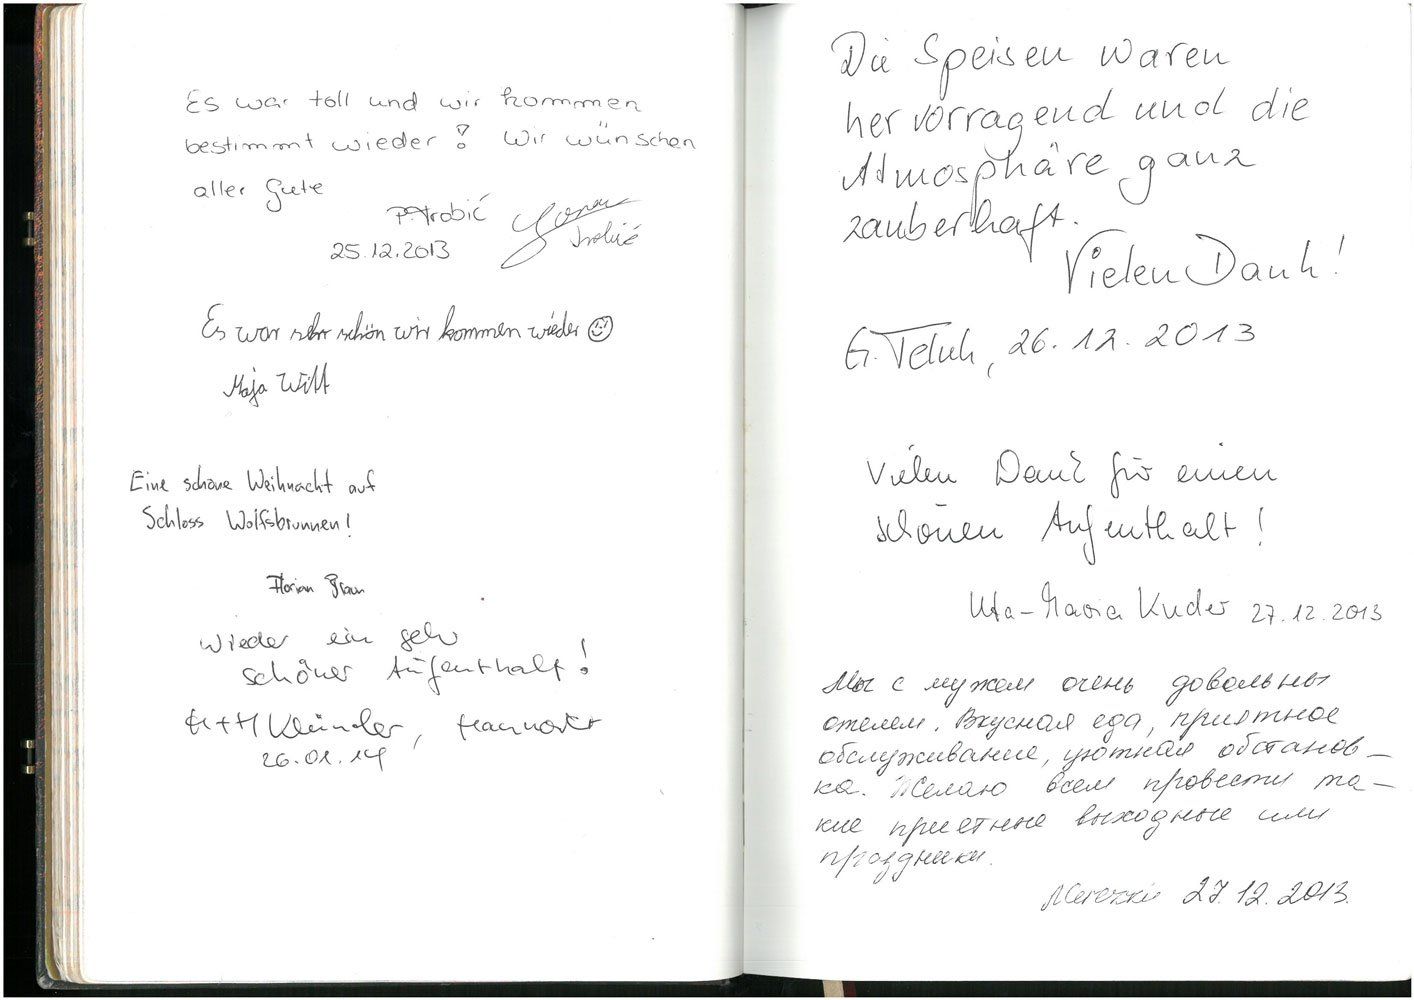 Es war toll und wir kommen
bestimmt wieder! Wir wünschen
aller Gute
25.12.2013
Es war sehr schön wir kommen wieder ☺
Maja Witt
Eine schöne Weihnacht auf
Schloss Wolfsbrunnen!
Florian Braun
Wieder ein sehr
schöner Aufenthalt!
H+H
26.01.14
Die Speisen waren
hervorragend und die
Atmosphäre ganz
zauberhaft.
Vielen Dank!
26.12.2013
Vielen Dank für einen
schönen Aufenthalt!
Uta-Maria Kuder 27.12.2013
Мы с мужем очень довольны
отелем. Вкусная еда, приятное
обслуживание, уютная обстанов-
ка. Желаю всем провести та-
кие приетные выходные или
праздники.
27.12.2013.